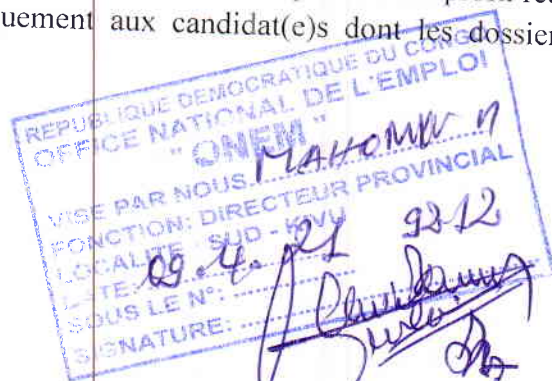 uement aux candidat(e)s dont les dossier
REPUBLIQUE DEMOCRATIQUE DU CONGO
OFFICE NATIONAL DE L'EMPLOI
" ONEM "
VISE PAR NOUS
FONCTION: DIRECTEUR PROVINCIAL
LOCALITE : SUD - KIVU
DATE: 09.4.21 9212
SOUS LE N°:
SIGNATURE: